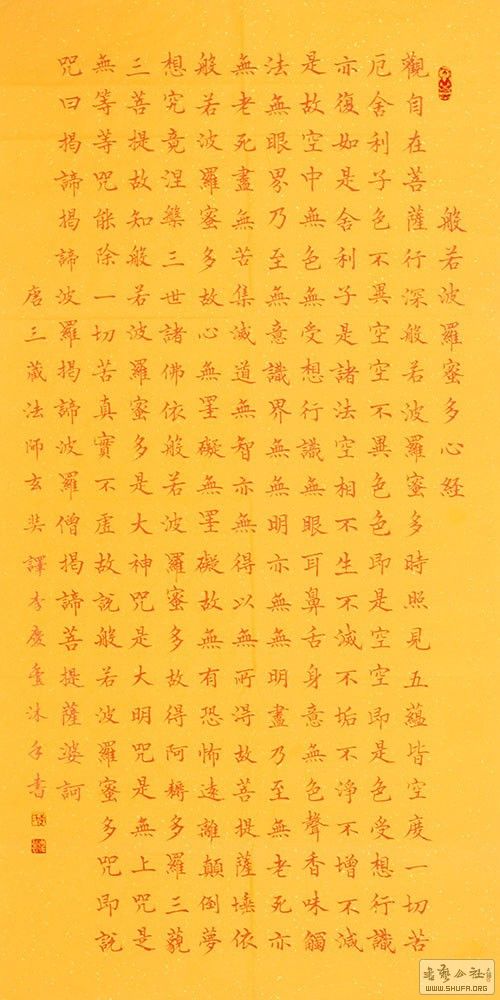 般若波羅蜜多心経
觀自在菩薩行深般若波羅蜜多時照見五蘊皆空度一切苦
厄舍利子色不異空空不異色色即是空空即是色受想行識
亦復如是舍利子是諸法空相不生不滅不垢不淨不增不減
是故空中無色無受想行識無眼耳鼻舌身意無色聲香味觸
法無眼界乃至無意識界無無明亦無無明盡乃至無老死亦
無老死盡無苦集滅道無智亦無得以無所得故菩提薩埵依
般若波羅蜜多故心無罣礙無罣礙故無有恐怖遠離顛倒夢
想究竟涅槃三世諸佛依般若波羅蜜多故得阿耨多羅三藐
三菩提故知般若波羅蜜多是大神咒是大明咒是無上咒是
無等等咒能除一切苦真實不虛故說般若波羅蜜多咒即說
咒曰揭諦揭諦波羅揭諦波羅僧揭諦菩提薩婆訶
唐三藏法師玄奘譯李慶沐手書
WWW.SHUFA.ORG